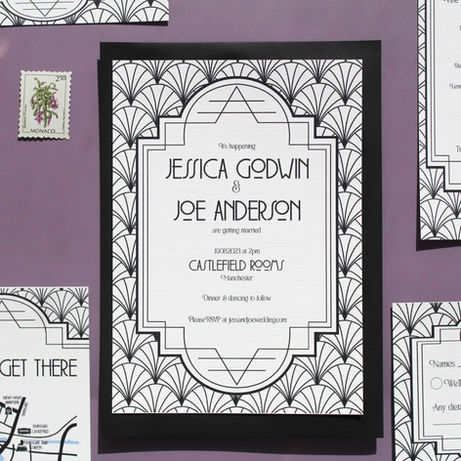 2.50
MONACO
It's happening
JESSICA GODWIN
&
JOE ANDERSON
are getting married
19.08.2023 at 2pm
CASTLEFIELD ROOMS
Manchester
Dinner & dancing to follow
Please RSVP at jessandjoewedding.com
GET THERE
Name
Any diet